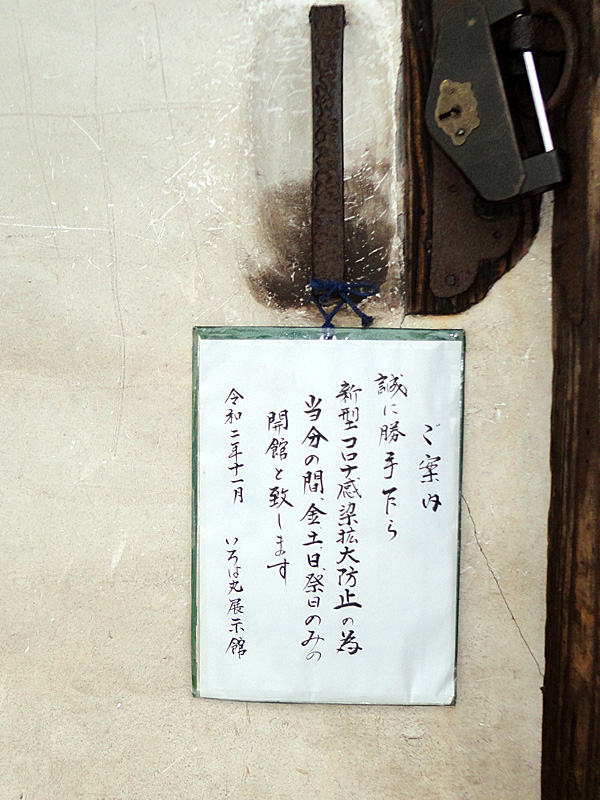 ご案内
誠に勝手乍ら
新型コロナ感染拡大防止の為
当分の間、金、土、日、祭日のみの
開館と致します
令和二年十一月 いろは丸展示館